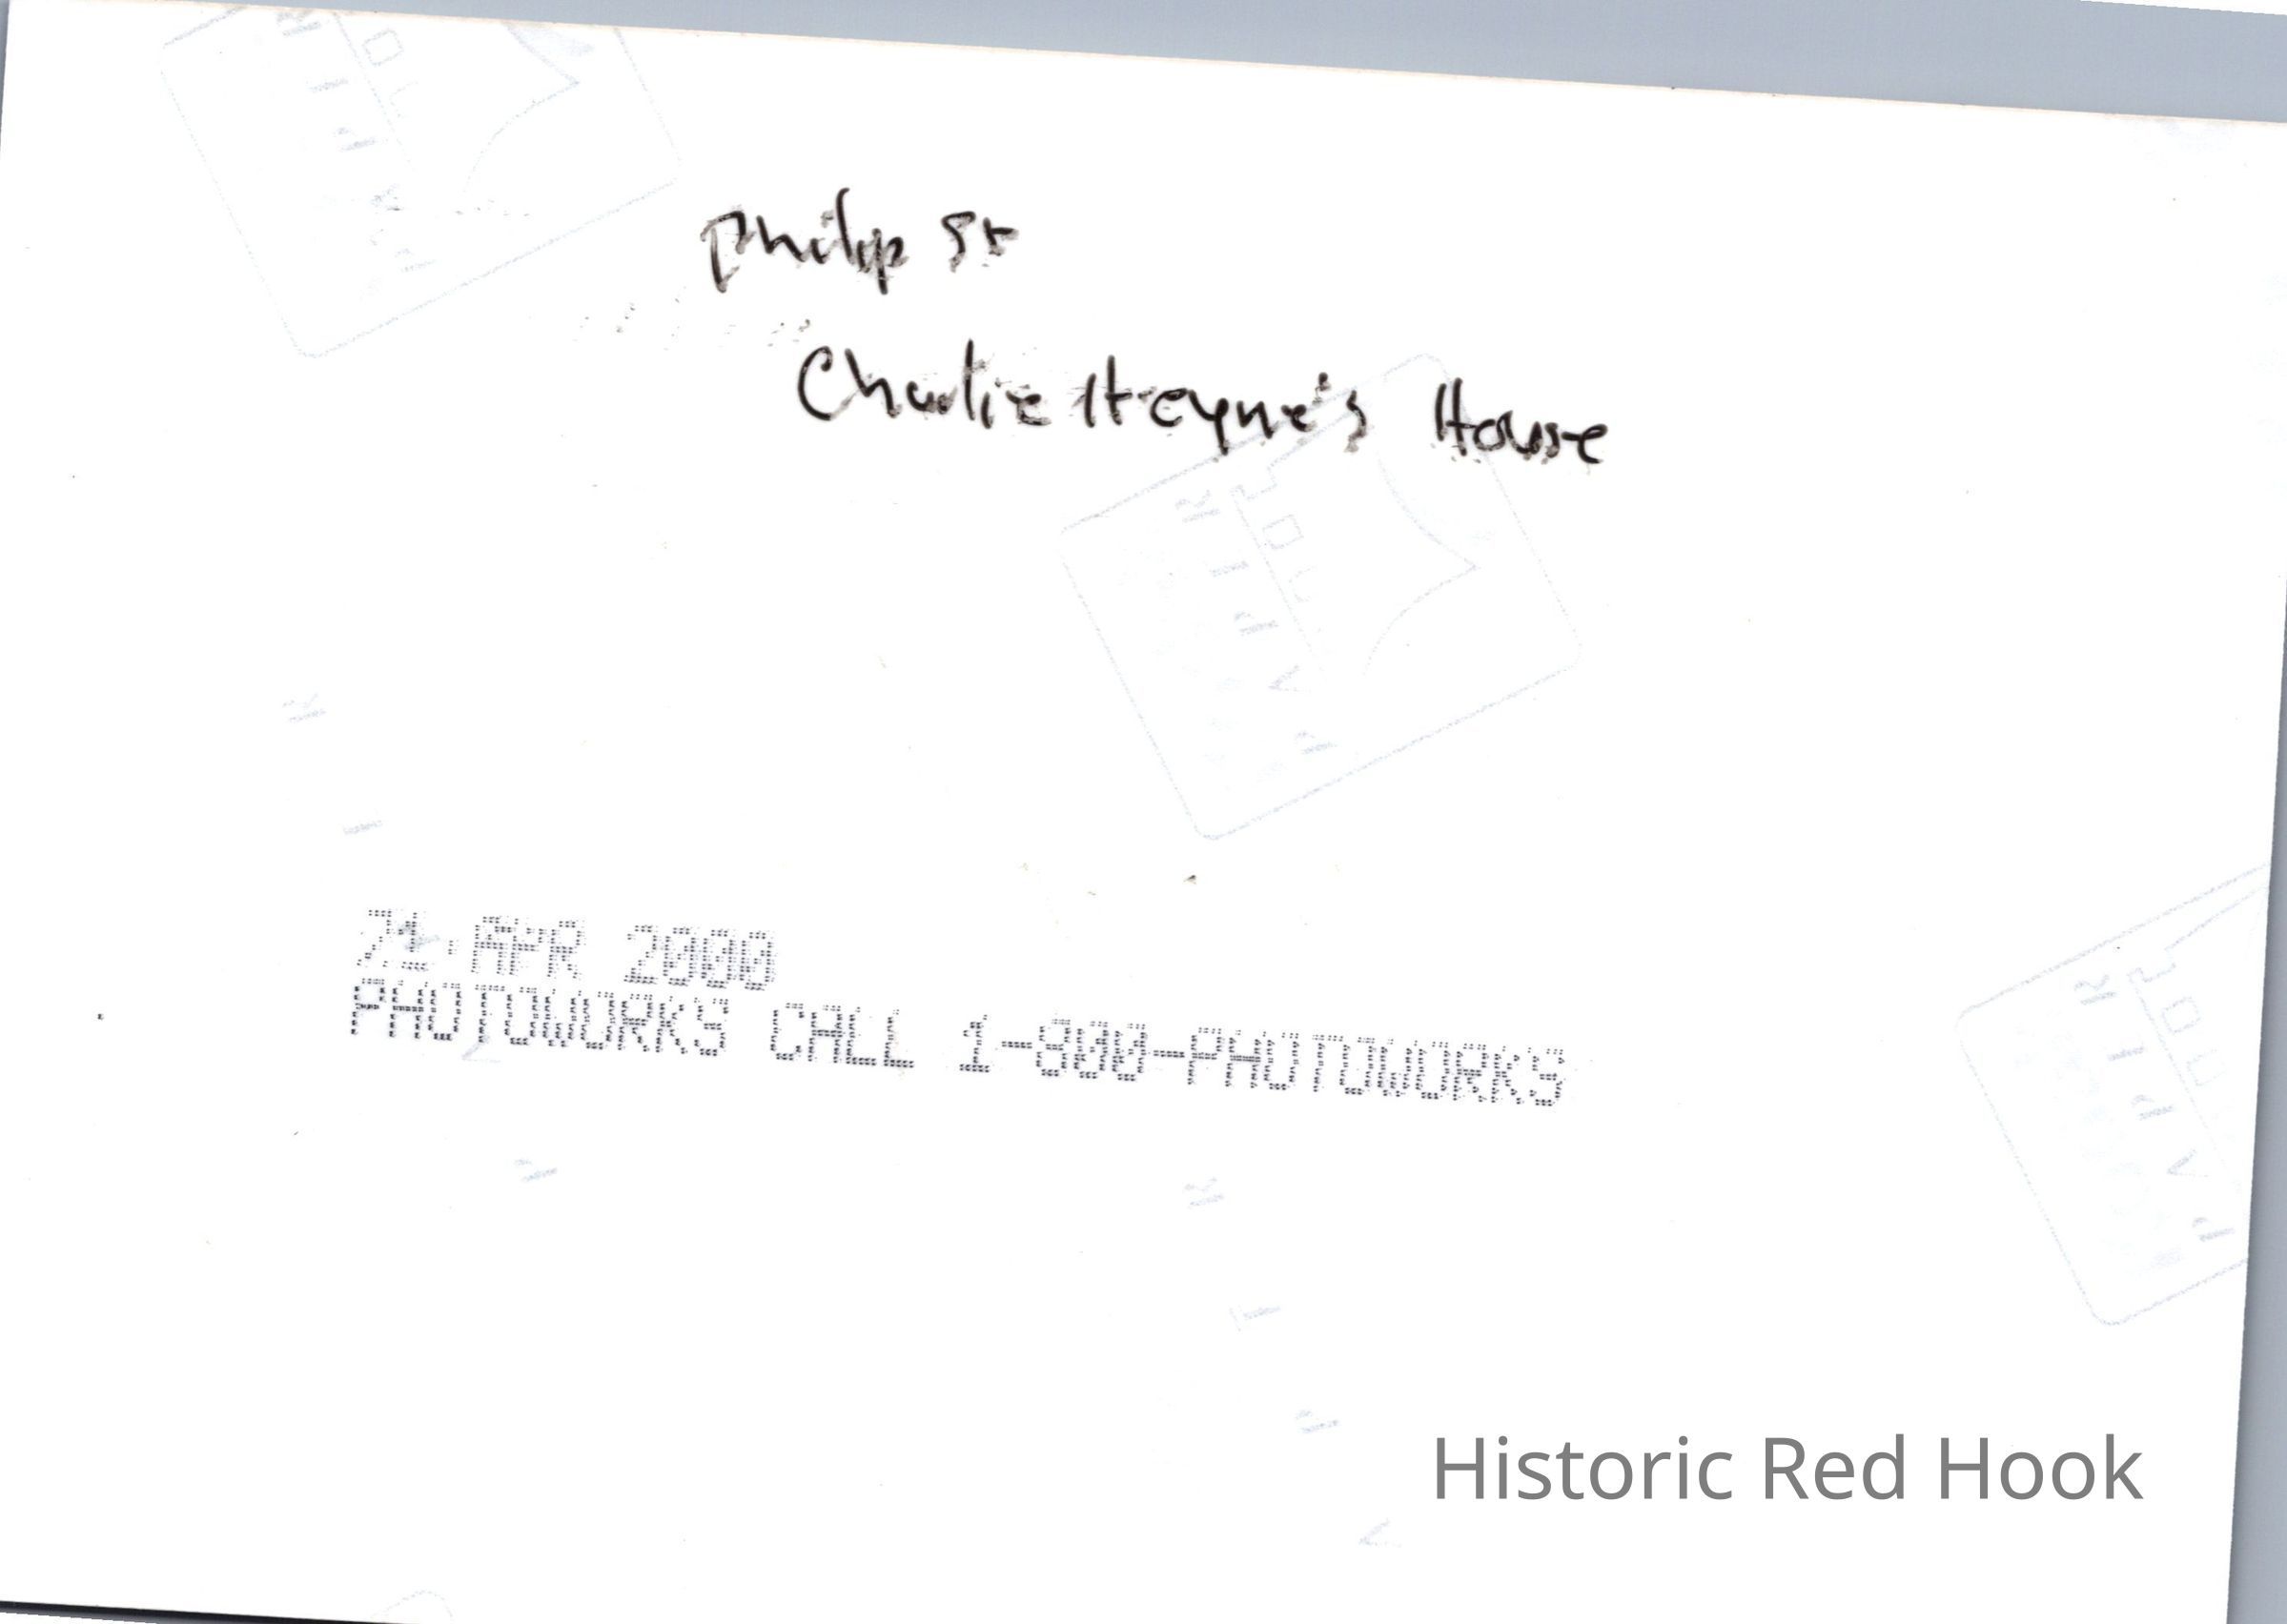 Philip St
Charlie Heyne's House
APR 2000
PHOTOWORKS CALL 1-800-PHOTOWORKS
Historic Red Hook